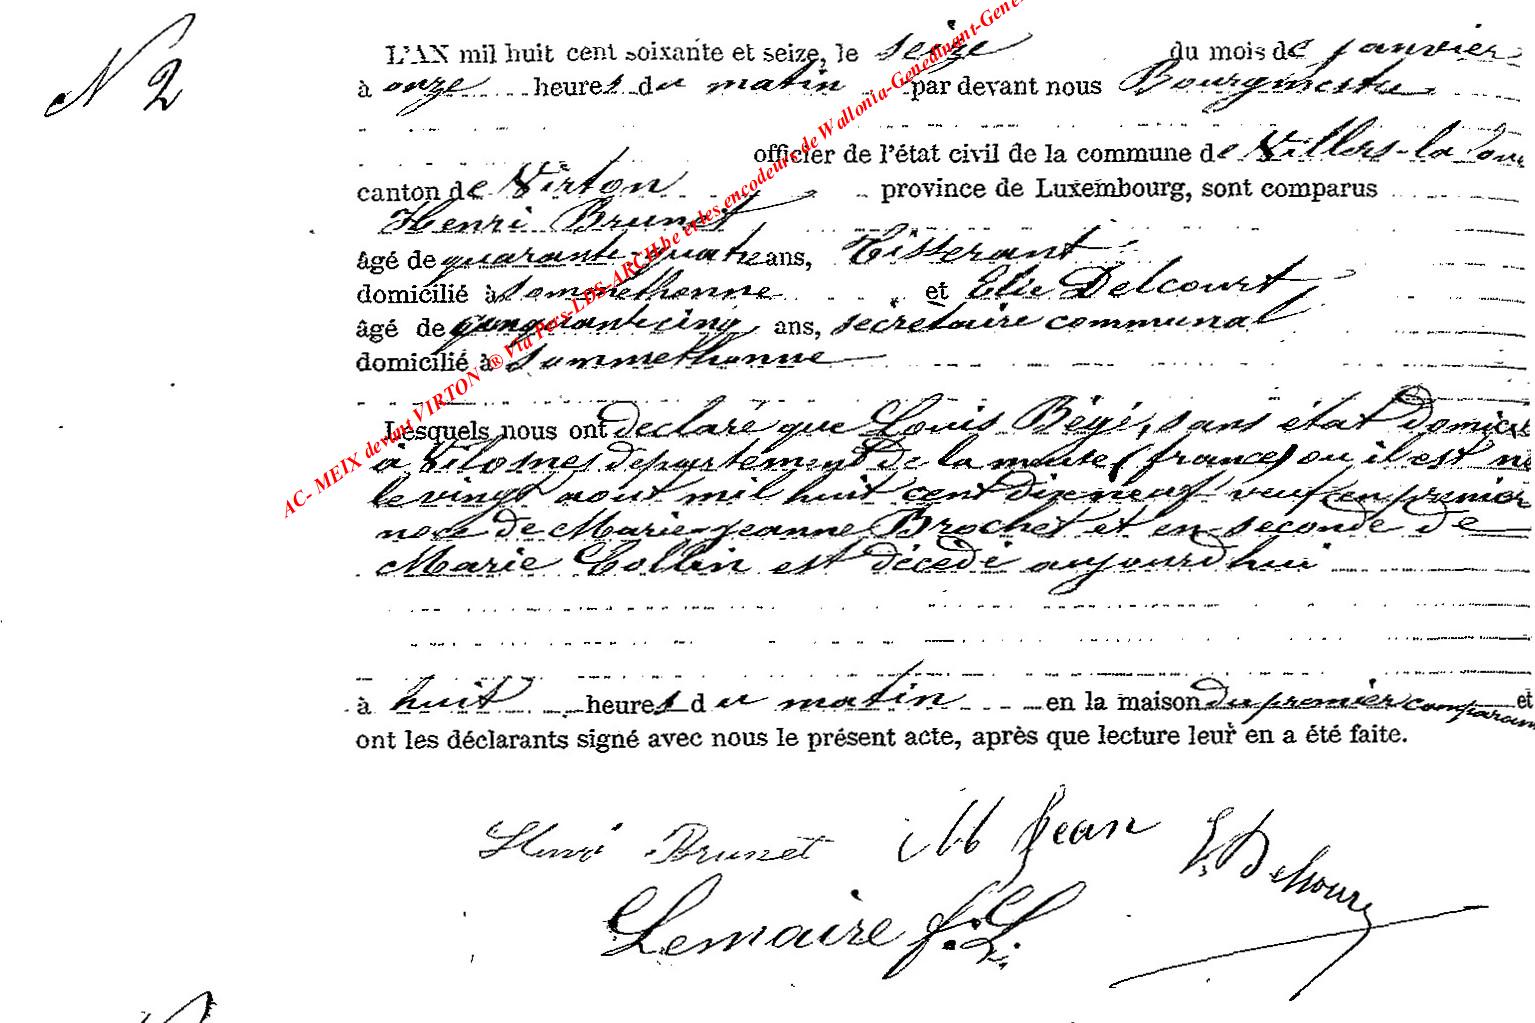 N 2
L'AN mil huit cent soixante et seize, le seize du mois de janvier
à onze heures du matin par devant nous Bourgmestre
officier de l'état civil de la commune de Villers-la-Loue
canton de Virton province de Luxembourg, sont comparus
Henri Brunet
âgé de quarante-quatre ans, Tisserant
domicilié à Sommethonne et Elie Delcourt
âgé de cinquante cinq ans, secrétaire communal
domicilié à Sommethonne
Lesquels nous ont déclaré que Louis Bégé, sans état Domicié
à Vilosnes département de la meuse (france) ou il est né
le vingt aout mil huit cent dix neuf veuf en premier
noce de Marie-jeanne Brochet et en seconde de
Marie Collin est décédé aujourd'hui
à huit heures du matin en la maison du premier comparant et
ont les déclarants signé avec nous le présent acte, après que lecture leur en a été faite.
Henri Brunet Jean E. Delcourt
Lemaire f. L.
AC- MEIX devant VIRTON ® Via Pers-LDS-ARCH.be et les encodeurs de Wallonia-Genedinant-Gene